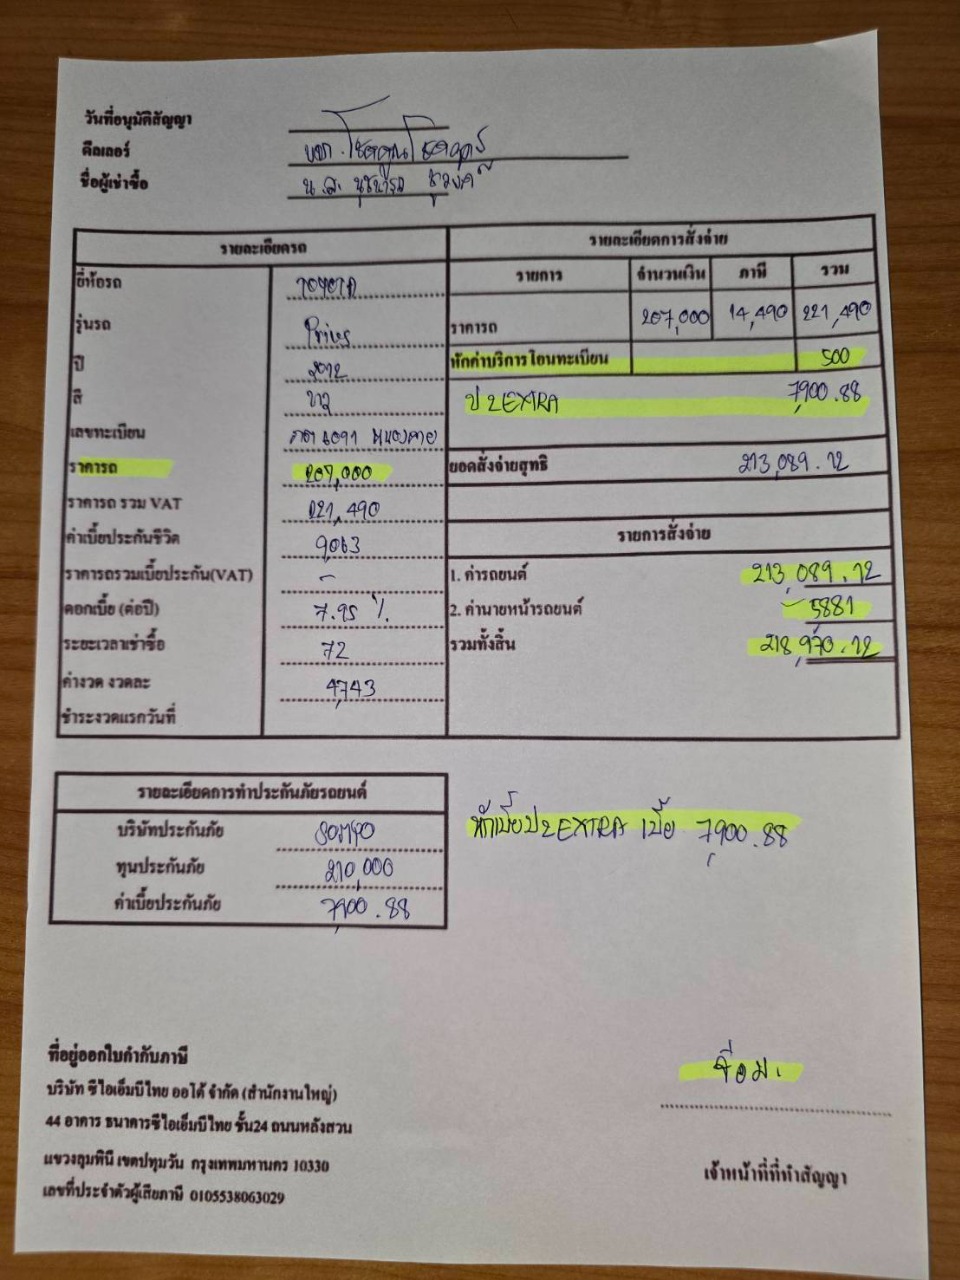 วันที่อนุมัติสัญญา
ดีลเลอร์ บจก. โชคคูณโชค
ชื่อผู้เช่าซื้อ น.ส.
รายละเอียดรถ
ยี่ห้อรถ TOYOTA
รุ่นรถ Prius
ปี 2012
สี ขาว
เลขทะเบียน หนองคาย
ราคารถ 207,000
ราคารถ รวม VAT 221,490
ค่าเบี้ยประกันชีวิต 9,063
ราคารถรวมเบี้ยประกัน(VAT) -
ดอกเบี้ย (ต่อปี) 7.95 %.
ระยะเวลาเช่าซื้อ 72
ค่างวด งวดละ 4,743
ชำระงวดแรกวันที่
รายละเอียดการสั่งจ่าย
รายการ จำนวนเงิน ภาษี รวม
ราคารถ 207,000 14,490 221,490
หักค่าบริการโอนทะเบียน 500
ป 2 EXTRA 7,900.88
ยอดสั่งจ่ายสุทธิ 213,089.12
รายการสั่งจ่าย
1. ค่ารถยนต์ 213,089.12
2. ค่านายหน้ารถยนต์ 5,881
รวมทั้งสิ้น 218,970.12
รายละเอียดการทำประกันภัยรถยนต์
บริษัทประกันภัย
ทุนประกันภัย 210,000
ค่าเบี้ยประกันภัย 7,900.88
หักเบี้ย ป 2 EXTRA เบี้ย 7,900.88
ที่อยู่ออกใบกำกับภาษี
บริษัท ซีไอเอ็มบีไทย ออโต้ จำกัด (สำนักงานใหญ่)
44 อาคาร ธนาคารซีไอเอ็มบีไทย ชั้น24 ถนนหลังสวน
แขวงลุมพินี เขตปทุมวัน กรุงเทพมหานคร 10330
เลขที่ประจำตัวผู้เสียภาษี 0105538063029
เจ้าหน้าที่ที่ทำสัญญา